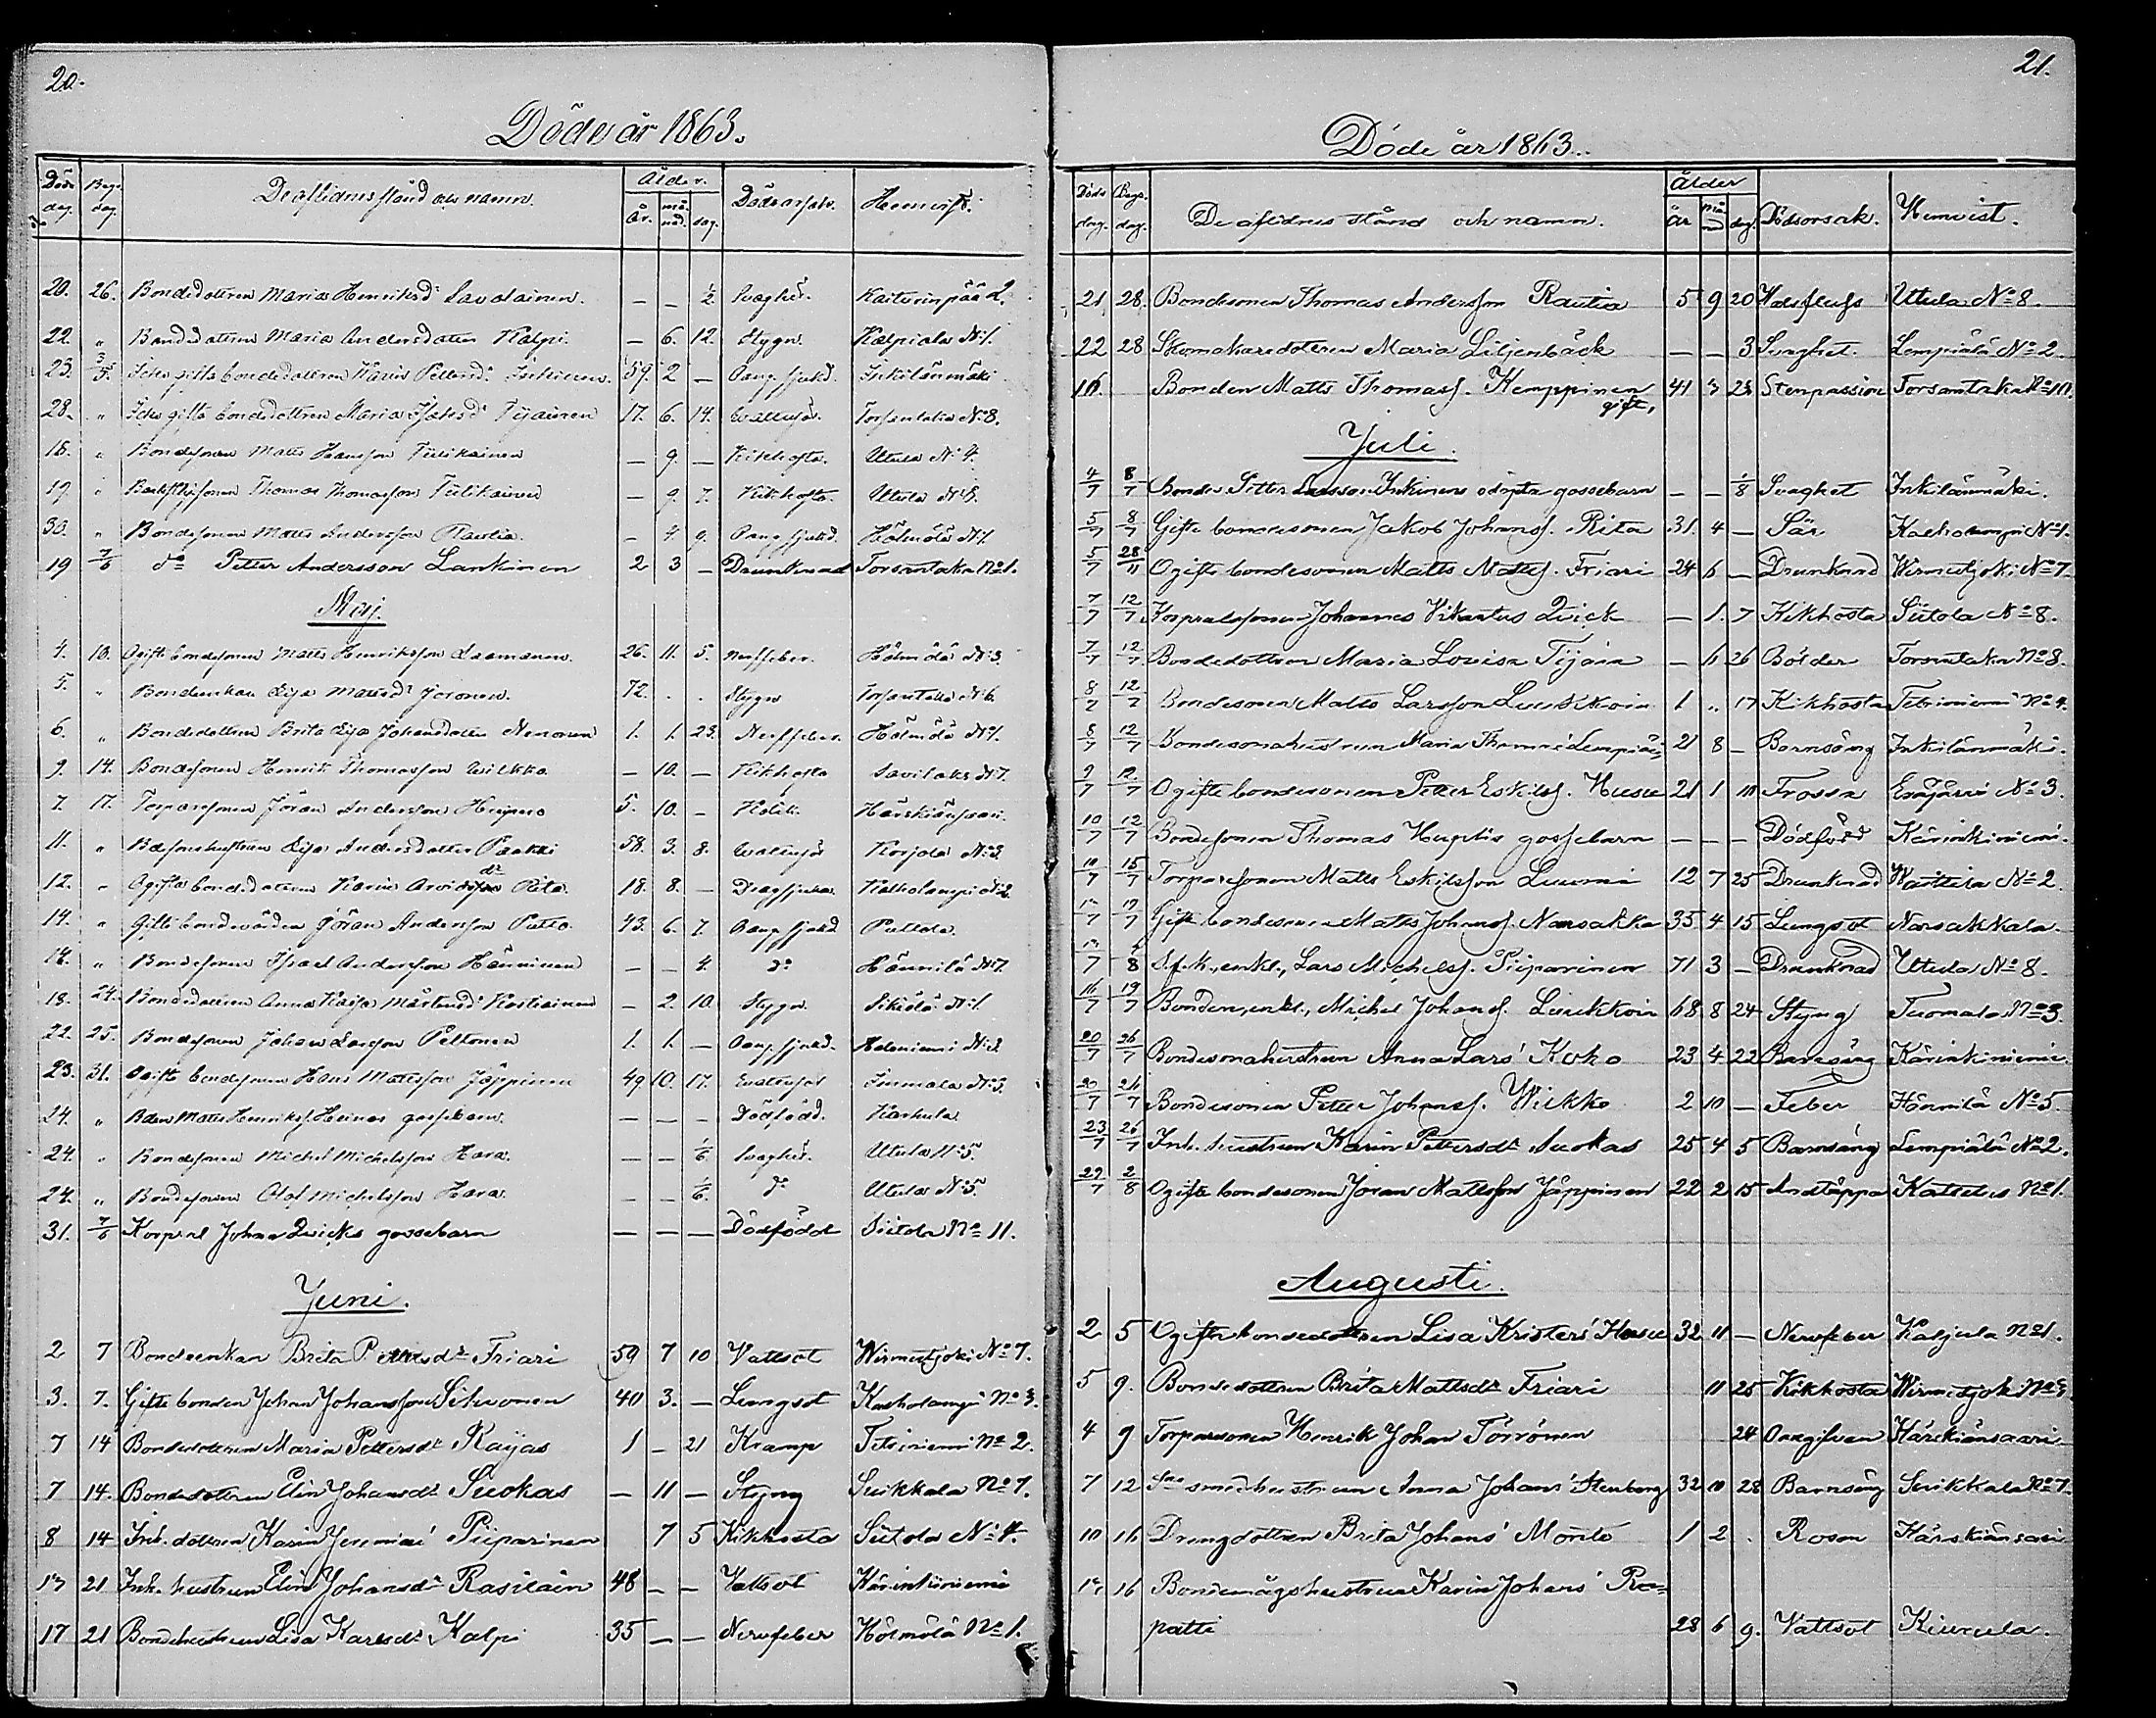 20.
Döde år 1863.
Döds dag. Begr. dag. De aflidnes stånd och namn. Ålder. år. månad. dag. Dödsorsak. Hemvist.
20. 26. Bondedottren Maria Henriksdr Savolainen. — — ½ Svaghet. Kaiturinpää 2.
22. " Bondedottren Maria Andersdotter Kalpi. — 6. 12. Stygn. Kalpiala N:1.
23. 3/5. Icke gifta bondedottren Maria Pettersdr Inkinen. 59. 2 — Bang sjukd. Inkilänmäki
28. " Icke gifta bondedottren Maria Isaksdr Tijainen 17. 6. 14. Wattusot. Torsantaka N:8.
18. " Bondesonen Matts Hansson Tulikainen — 9. — Kikhosta. Utula N:4.
19. " Thomas Thomasson Tulikainen — 9. 7. Kikhosta. Utula N:8.
30. " Bondesonen Matts Andersson Rautia. — 4 9. Bang sjukd. Hälmälä N:1.
19 7/6 do Petter Andersson Lankinen 2 3 — Drunknad Torsantaka No 1.
Maj.
4. 10. Ogifte bondesonen Matts Henriksson Laamanen. 26. 11. 5. Nervfeber. Hölmölä N:3.
5. " Bondeenkan Lisa Mattsdr Joronen. 72. . . Stygn Torsantaka N:6.
6. " Bondedottren Brita Lisa Johansdotter Nenonen 1. 1. 23. Nervfeber. Hölmölä N:1.
9. 14. Bondesonen Henrik Thomasson Wilkko. — 10. — Kikhosta Savilaks N:7.
7. 17. Torparesonen Jöran Andersson 5. 10. — Kolik. Härskiänsaari.
11. " Lisa Andersdotter Paakki 58. 3. 8. Wattusot Korjola N:3.
12. " Ogifta bondedottren Karin Arvidsdr Rita. 18. 8. — Dragsjuka. Kalholampi N:2.
14. " Gifte bondevärden Jöran Andersson Putto. 43. 6. 7. Bang sjukd Puttola.
14. " Bondesonen Israel Andersson Hänninen — — 4. do Hännilä N:7.
18. 24. Bondedottren Anna Kaisa Mårtensdr Kostiainen — 2. 10. Stygn. Sikiölä N:1.
22. 25. Bondesonen Johan Larsson Peltonen 1. 1. — Bang sjukd. N:3.
23. 31. Ogifte bondesonen Hans Mattsson Jäppinen 49 10. 17. Immala N:5.
24. " Bden Matts Henrikss. Heinos gossebarn. — — — Dödfödd. Karhula.
24. " Bondesonen Michel Michelsson Hara. — — 1/6 Svaghet. Utula N:5.
24. " Bondesonen Olof Michelsson Hara. — — 1/6. do Utula N:5.
31. 7/6 Korpral Johan Qvicks gossebarn — — — Dödfödd Siitola No 11.
Juni.
2 7 Bondeenkan Brita Pettersdr Friari 59 7 10 Vattsot Wirmutjoki No 7.
3. 7. Gifte bonden Johan Johansson Sihvonen 40 3. — Lungsot Kalholampi No 3.
7 14 Bondedottren Maria Pettersdr Raijas 1 — 21 Kramp Tetriniemi No 2.
7 14. Bondedottren Elin Johansdr Suokas — 11 — Styng Suikkala No 7.
8 14 Inh. dottren Karin Jeremias' Piiparinen 7 5 Kikhosta Siitola No 4.
17 21 Inh. hustrun Elin Johansdr Rasilain 48 — — Vattsot Kärinkiniemi
17 21 Bondehustrun Lisa Karlsdr Kalpi 35 — — Nervfeber Hölmölä No 1.
21.
Döde år 1863.
Döds dag. Begr. dag. De aflidnes stånd och namn. Ålder år månad dag. Dödsorsak. Hemvist.
21 28. Bondesonen Thomas Andersson Rautia 5 9 20 Halsfluss Utula No 8.
22 28 Skomakaredottren Maria Liljenbäck — — 3 Svaghet. Lempiälä No 2.
16. Bonden Matts Thomass. Kemppinen 41 3 23 Stenpassion Torsantaka No 10.
gift,
Juli.
4/7 8/7 Bonden Petter Larsson Inkinens odöpta gossebarn — — 1/8 Svaghet Inkilänmäki.
5/7 8/7 Gifte bondesonen Jakob Johanss. Rita 31. 4 — Sår Kalholampi No 1.
5/7 28/11 Ogifte bondesonen Matts Mattss. Friari 24 6 — Drunknad Wirmutjoki No 7.
7/7 12/7 Korpralssonen Johannes Vikantus Qvick — 1. 7 Kikhosta Siitola No 8.
7/7 12/7 Bondedottren Maria Lovisa Tijain — 6 26 Bölder Torsantaka No 8.
8/7 12/7 Bondesonen Matts Larsson Luukkoin 1 . 17 Kikhosta Tetriniemi No 4.
8/7 12/7 Bondesonahustrun Maria Thomas' Lempiäi= 21 8 — Barnsäng Inkilänmäki.
9/7 12/7 Ogifte bondesonen Petter Eskilss. Husu 21 1 10 Frossa Eräjärvi No 3.
10/7 12/7 Bondesonen Thomas Huplis gossebarn — — — Dödfödd Kärinkiniemi.
10/7 15/7 Torparesonen Matts Eskilsson Luumi 12 7 25 Drunknad Waittila No 2.
12/7 19/7 Gifte bondesonen Matts Johanss. Narsakka 35 4 15 Lungsot Narsakkala.
12/7 2/8 S.f.k., enkl., Lars Michelss. Piiparinen 71 3 — Drunknad Utula No 8.
16/7 19/7 Bonden, enkl., Michel Johanss. Luukkoin 68 8 24 Styng Tuomala No 3.
20/7 26/7 Bondesonahustrun Anna Lars' Koko 23 4 22 Barnsäng Kärinkiniemi.
20/7 26/7 Bondesonen Petter Johanss. Wilkko 2 10 — Feber Hännilä No 5.
23/7 26/7 Inh. hustrun Karin Pettersdr Suokas 25 4 5 Barnsäng Lempiälä No 2.
27/7 2/8 Ogifte bondesonen Jöran Mattsson Jäppinen 22 2 15 Andtäppa Kattelus No 1.
Augusti.
2 5 Ogifta bondedottren Lisa Kristers' Husu 32 11 — Nervfeber Kaljula No 1.
5 9. Bondedottren Brita Mattsdr Friari 11 25 Kikhosta Wirmutjok No
4 9 Torparesonen Henrik Johan Törrönen 24 Oangifven Härskiänsaari
7 12 smedhustrun Anna Johans' Stenberg 32 10 28 Barnsäng Suikkala No 7
10 16 Drengdottren Brita Johans' Montö 1 2 . Rosen Härskiänsaari
12 16 Bondemågshustrun Karin Johans' Ra=
patti 28 6 9. Vattsot Kiurula.